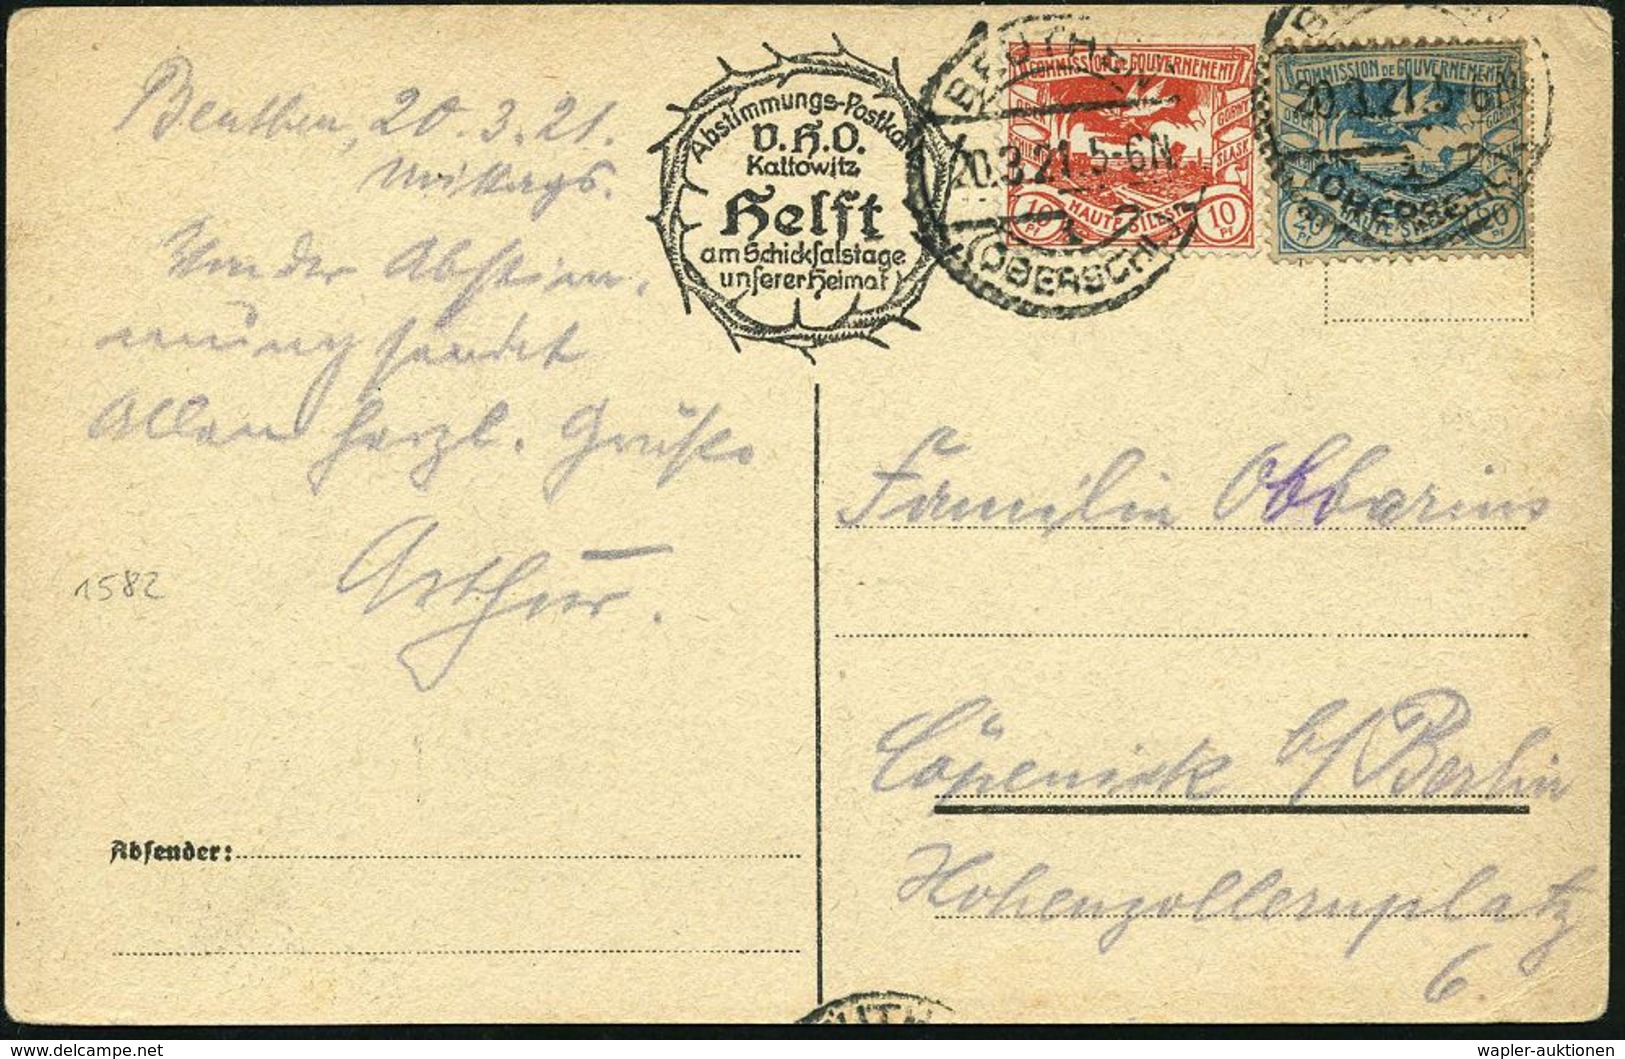 Beuthen, 20.3.21.
mittags.
Von der Abstim-
mung sendet
Allen herzl. Grüße
Arthur.
1582
Absender:
Abstimmungs-Postkarte
V.H.O.
Kattowitz
Helft
am Schicksalstage
unserer Heimat!
BEUTHEN
20.3.21.5-6N.
(OBERSCHL.)
COMMISSION DE GOUVERNEMENT
OBER SCHLESIEN
GORNY SLASK
HAUTE SILESIE
10 Pf 10 Pf
20.3.21.5-6N
(OBERSCHL.)
COMMISSION DE GOUVERNEMENT
OBER
GORNY SLASK
HAUTE SILESIE
20 Pf 20 Pf
Familie Obbarius
Cöpenick b/ Berlin
Hohenzollernplatz
6.
wapler-auktionen